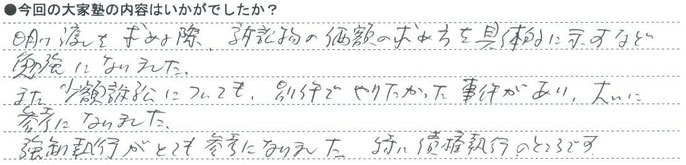 ●今回の大家塾の内容はいかがでしたか？
明け渡しを求める際、訴訟物の価額の求め方を具体的に示すなど
勉強になりました。
また少額訴訟についても、別件でやりたかった事件があり、大いに
参考になりました。
強制執行がとても参考になりました 特に債権執行のところです